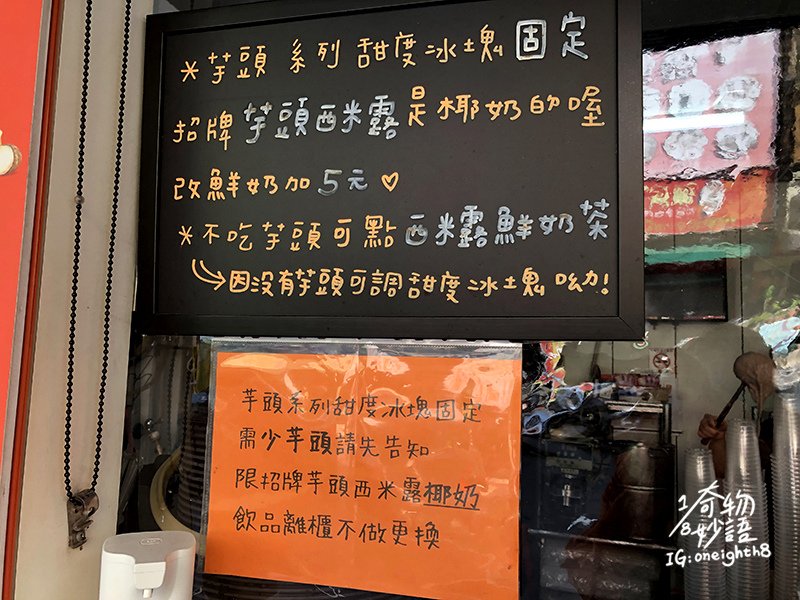 *芋頭 系列 甜度冰塊固定
招牌芋頭西米露是椰奶的喔
改鮮奶加5元♡
*不吃芋頭可點西米露鮮奶茶
因沒有芋頭可調甜度冰塊呦!
芋頭系列甜度冰塊固定
需少芋頭請先告知
限招牌芋頭西米露椰奶
飲品離櫃不做更換
1/8奇物妙語
IG:oneighth8